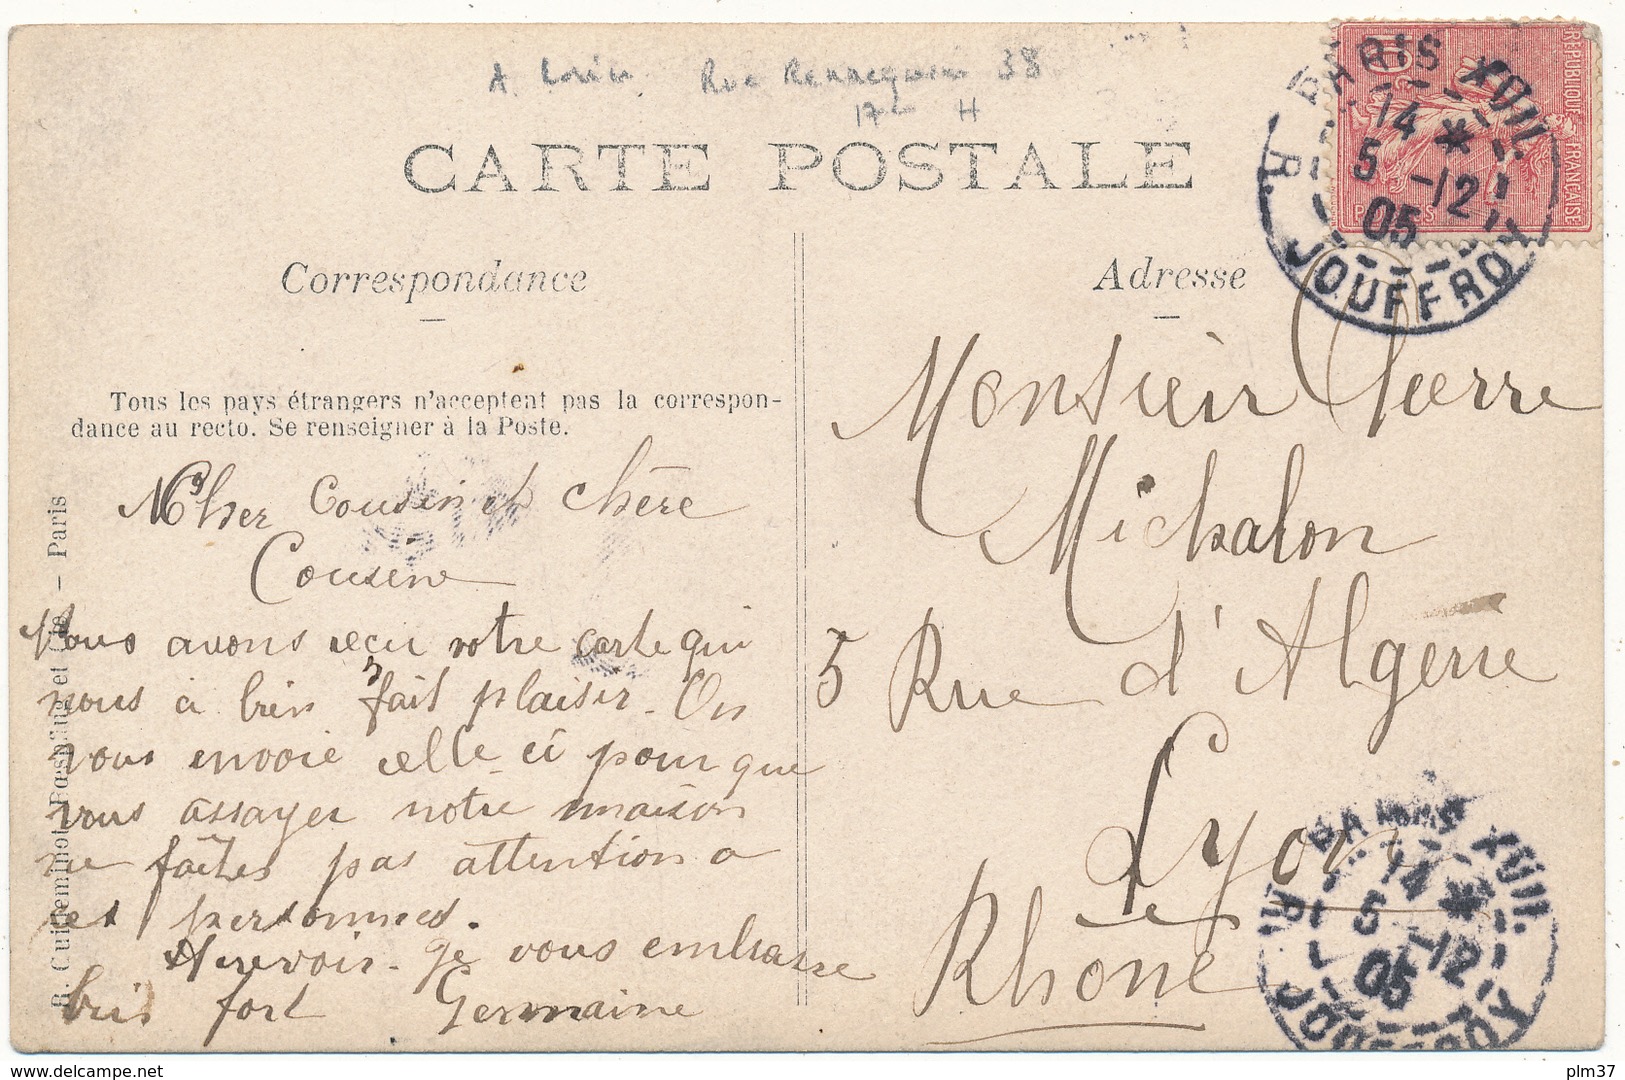 Rue Rennequin 38
17e H
CARTE POSTALE
REPUBLIQUE FRANÇAISE
10
POSTES
PARIS XVII.
14 *
5 -12
05
R. JOUFFROY
Correspondance
Adresse
Tous les pays étrangers n'acceptent pas la correspon-
dance au recto. Se renseigner à la Poste.
Cher Cousin et chère
Cousine
Nous avons reçu votre carte qui
nous a bien fait plaisir. On
vous envoie celle-ci pour que
vous assayer notre maison
ne faîtes pas attention a
les personnes.
Aurevoir. Je vous embrasse
bien fort Germaine
Monsieur Pierre
Michalon
5 Rue d'Algerie
Lyon
Rhone
PARIS XVII.
14 *
5 -12
05
R. JOUFFROY
R. Guilleminot, Bœspflug et Cie. — Paris
delcampe.net
plm37